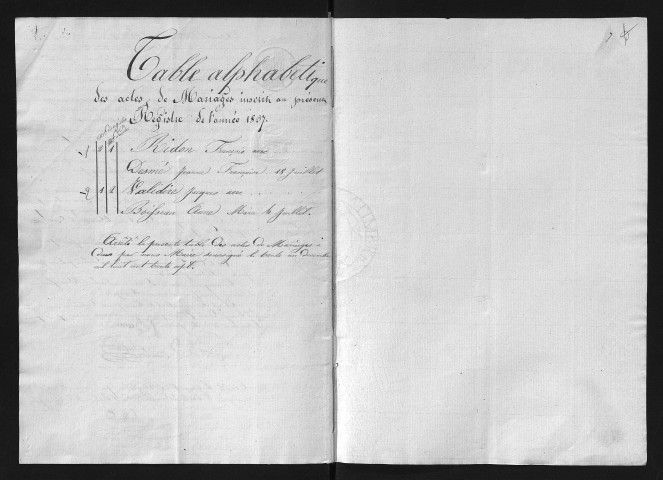 Table alphabétique
des actes de Mariages inscrits au présent
Registre de l'année 1837.
1 Ridon François avec
Desmé Jeanne Françoise 18 juillet
2 1 2 Validire Jacques avec
Boisseau Anne Marie 4 juillet.
Arrêté la présente table des actes de Mariages à
deux par nous Maire soussigné le trente un Decembre
mil huit cent trente sept.